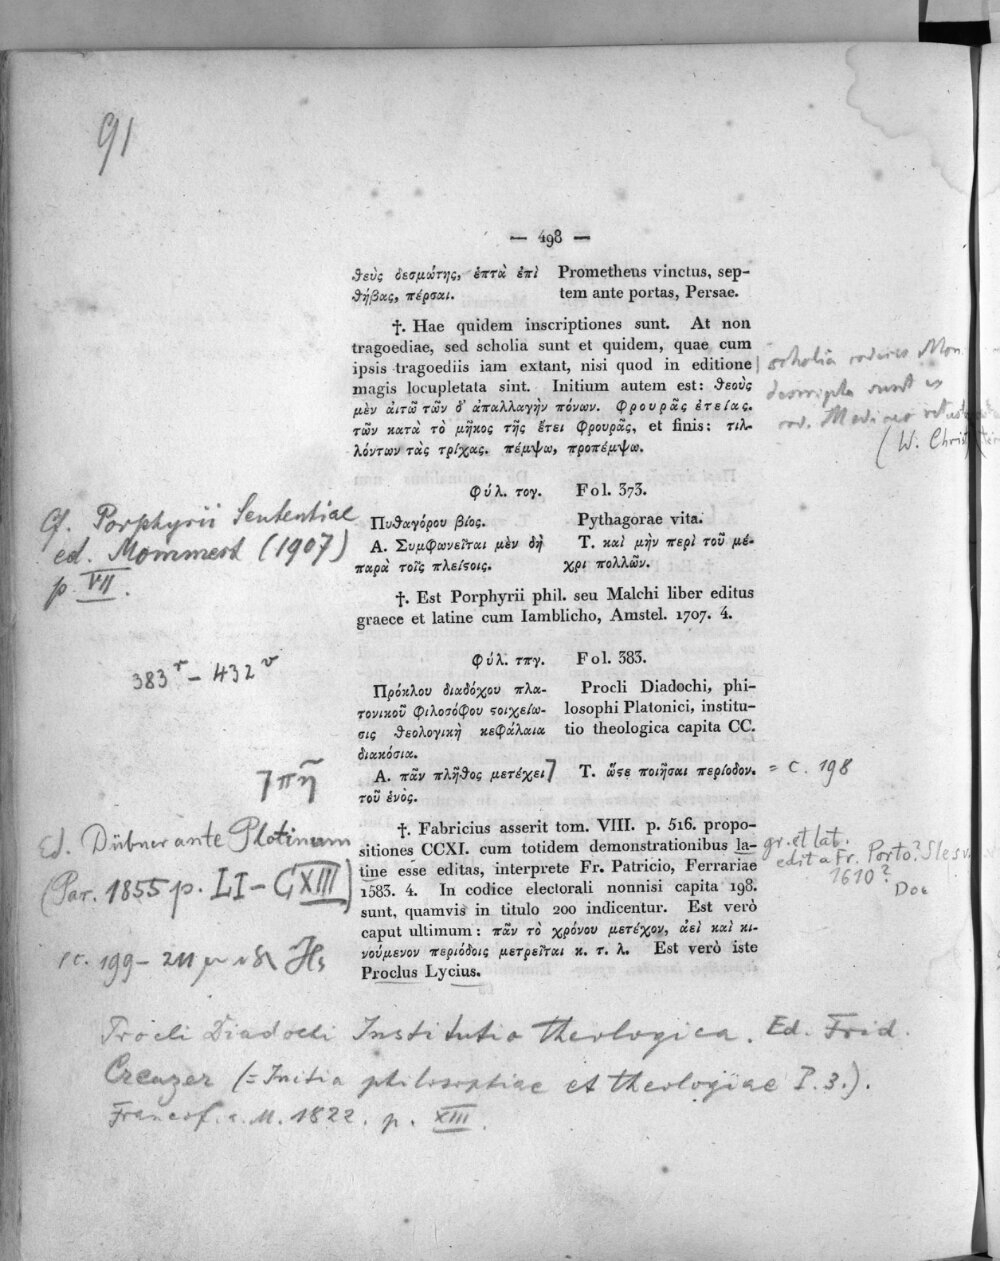 91
— 498 —
θεὺς δεσμώτης, ἑπτὰ ἐπὶ Prometheus vinctus, sep-
θήβας, πέρσαι. tem ante portas, Persae.
†. Hae quidem inscriptiones sunt. At non
tragoediae, sed scholia sunt et quidem, quae cum
ipsis tragoediis iam extant, nisi quod in editione
magis locupletata sint. Initium autem est: θεοὺς
μὲν ἀιτῶ τῶν δ' ἀπαλλαγὴν πόνων. Φρουρᾶς ἐτείας.
τῶν κατὰ τὸ μῆκος τῆς ἔτει Φρουρᾶς, et finis: τιλ-
λόντων τὰς τρίχας. πέμψω, προπέμψω.
scholia codicis Mon
descripta sunt ex
cod. Mediceo
(W. Christ
Φύλ. τογ. Fol. 373.
Πυθαγόρου βίος. Pythagorae vita.
Α. Συμφωνεῖται μὲν δὴ Τ. καὶ μὴν περὶ τοῦ μέ-
παρὰ τοῖς πλείςοις. χρι πολλῶν.
Cf. Porphyrii Sententiae
ed. Mommert (1907)
p. VII.
†. Est Porphyrii phil. seu Malchi liber editus
graece et latine cum Iamblicho, Amstel. 1707. 4.
Φύλ. τπγ. Fol. 383.
383r – 432v
Πρόκλου διαδόχου πλα- Procli Diadochi, phi-
τονικοῦ Φιλοσόφου ςοιχείω- losophi Platonici, institu-
σις θεολογικὴ κεφάλαια tio theologica capita CC.
διακόσια.
Α. πᾶν πλῆθος μετέχει Τ. ὥςε ποιῆσαι περίοδον. = c. 198
τοῦ ἑνός.
πῆ
†. Fabricius asserit tom. VIII. p. 516. propo-
sitiones CCXI. cum totidem demonstrationibus la-
tine esse editas, interprete Fr. Patricio, Ferrariae
1583. 4. In codice electorali nonnisi capita 198.
sunt, quamvis in titulo 200 indicentur. Est verò
caput ultimum: πᾶν τὸ χρόνου μετέχον, ἀεὶ καὶ κι-
νούμενον περιόδοις μετρεῖται κ. τ. λ. Est verò iste
Proclus Lycius.
gr. et lat.
edit a Fr. Porto?
1610?
Ed. Dübner ante Plotinum
(Par. 1855 p. LI – CXIII)
c. 199 – 211
Procli Diadochi Institutio theologica. Ed. Frid.
Creuzer (= Initia philosophiae et theologiae P. 3.).
Francof. a. M. 1822. p. XIII.